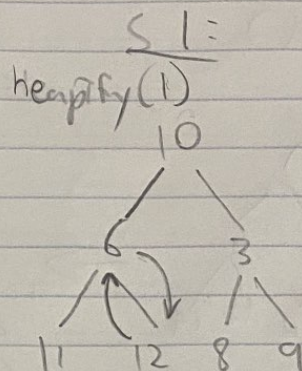 S 1:
heapify(1)
10
6 3
11 12 8 9